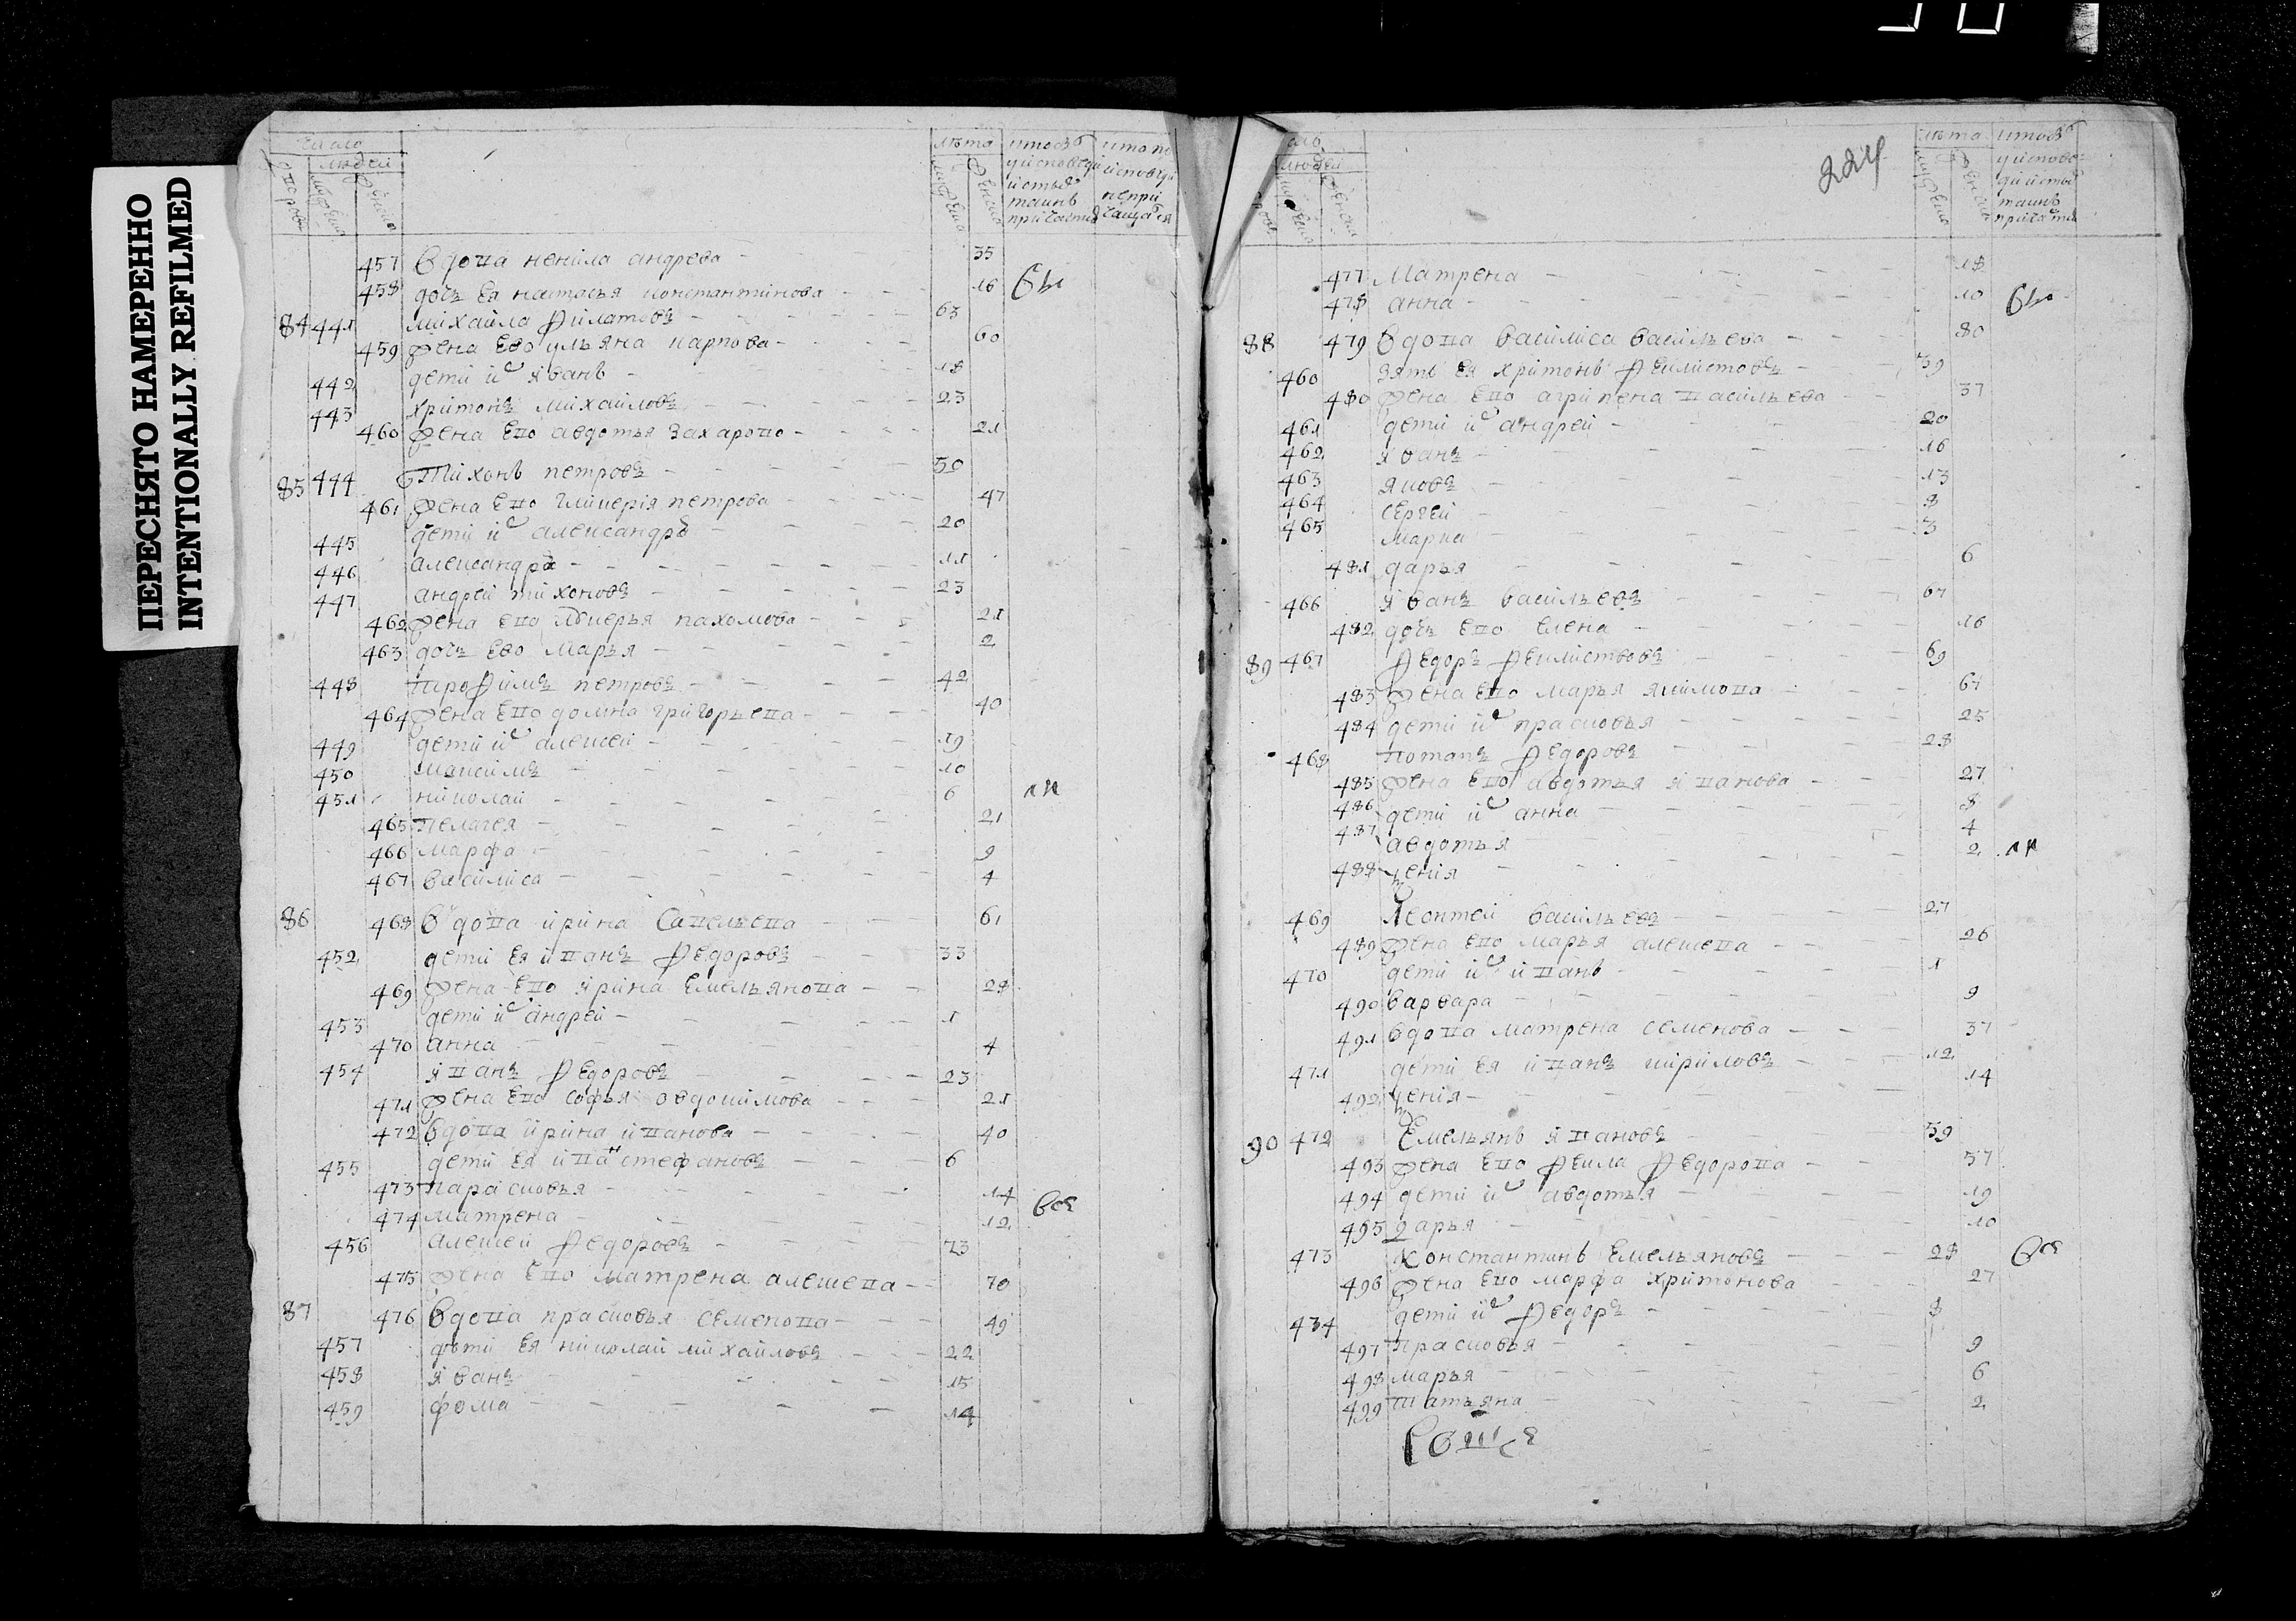 ПЕРЕСНЯТО НАМЕРЕННО
INTENTIONALLY REFILMED
число
людей
лѣта
457 вдова ненила андрева 35
458 дочь ея настасья константинова 16
84 441 михайла филатовъ 63
459 жена ево ульяна карпова 60
442 дети ихъ яванъ 18
443 харитонъ михаиловъ 23
460 жена ево авдотья захарово 21
85 444 Тихонъ петровъ 50
461 жена ево гликерія петрова 47
445 дети ихъ александръ 20
446 александръ 11
447 андрей тихоновъ 23
462 жена ево лукерья пахомова 21
463 дочь ево марья 2
448 трофимъ петровъ 42
464 жена ево домна григорьева 40
449 дети ихъ алексей 19
450 максимъ 10
451 николай 6
465 пелагея 21
466 марфа 9
467 василиса 4
86 468 вдова ирина савельева 61
452 дети ея иванъ федоровъ 33
469 жена ево ярина емельянова 28
453 дети ихъ андрей 1
470 анна 4
454 яванъ федоровъ 23
471 жена ево софья овдокимова 21
472 вдова ирина иванова 40
455 дети ея иванъ стефановъ 6
473 парасковья 14
474 матрена 12
все
456 алексей федоровъ 73
475 жена ево матрена алексева 70
87 476 вдова прасковья семенова 49
457 дѣти ея николай михайловъ 22
458 яванъ 15
459 фома 14
224
людей
лѣта
477 матрена 18
478 анна 10
88 479 вдова василиса васильева 80
460 зять ея харитонъ феклистовъ 39
480 жена ево агрипена васильева 37
461 дети ихъ андрей 20
462 яванъ 16
463 яковъ 13
464 сергей 8
465 марка 3
481 дарья 6
466 яванъ васильевъ 67
482 дочь ево елена 16
89 467 федоръ феклистовъ 69
483 жена ево марья якимова 67
484 дети ихъ прасковья 25
468 потапъ федоровъ 28
485 жена ево авдотья яванова 27
486 дети ихъ анна 8
487 авдотья 4
488 ксенія 2
469 леонтей васильевъ 27
489 жена ево марья алексева 26
470 дети ихъ иванъ 1
490 варвара 9
491 вдова матрена семенова 37
471 дети ея иванъ кириловъ 12
492 ксенія 14
90 472 емельянъ явановъ 59
493 жена ево фекла федорова 57
494 дети ихъ авдотья 19
495 дарья 10
473 константинъ емельяновъ 28
все
496 жена ево марфа харитонова 27
474 дети ихъ федоръ 8
497 прасковья 9
498 марья 6
499 татьяна 2